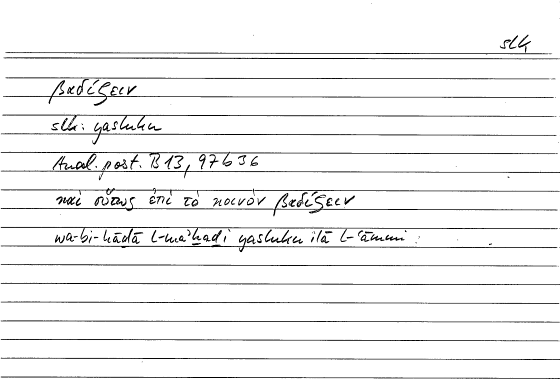 slk
βαδίζειν
slk: yasluku
Anal. post. B 13, 97b36
καὶ οὕτως ἐπὶ τὸ κοινὸν βαδίζειν
wa-bi-hāḏā l-maʾḫaḏi yasluku ilā l-ʿāmmi :